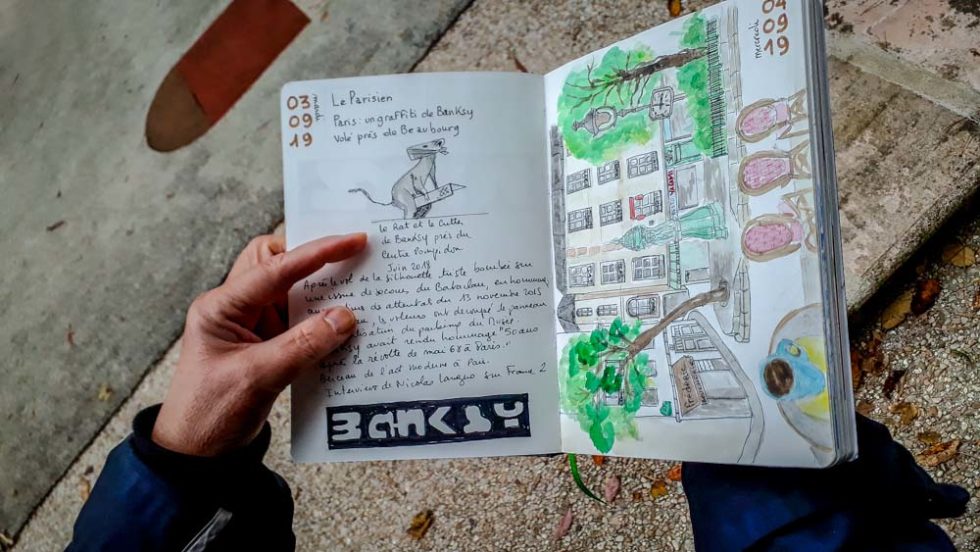 03
09
19
mardi
Le Parisien
Paris: un graffiti de Banksy
volé près de Beaubourg
Le Rat et le Cutter
de Banksy près du
Centre Pompidou
Juin 2018
Après le vol de la silhouette triste bombée sur
une issue de secours du Bataclan, en hommage
aux des attentats du 13 novembre 2015
les voleurs ont découpé le panneau
du parking du Musée
avait rendu hommage "50 ans
la révolte de mai 68 à Paris."
Berceau de l'art moderne à Paris.
Interview de Nicolas sur France 2
BANKSY
mercredi
04
09
19